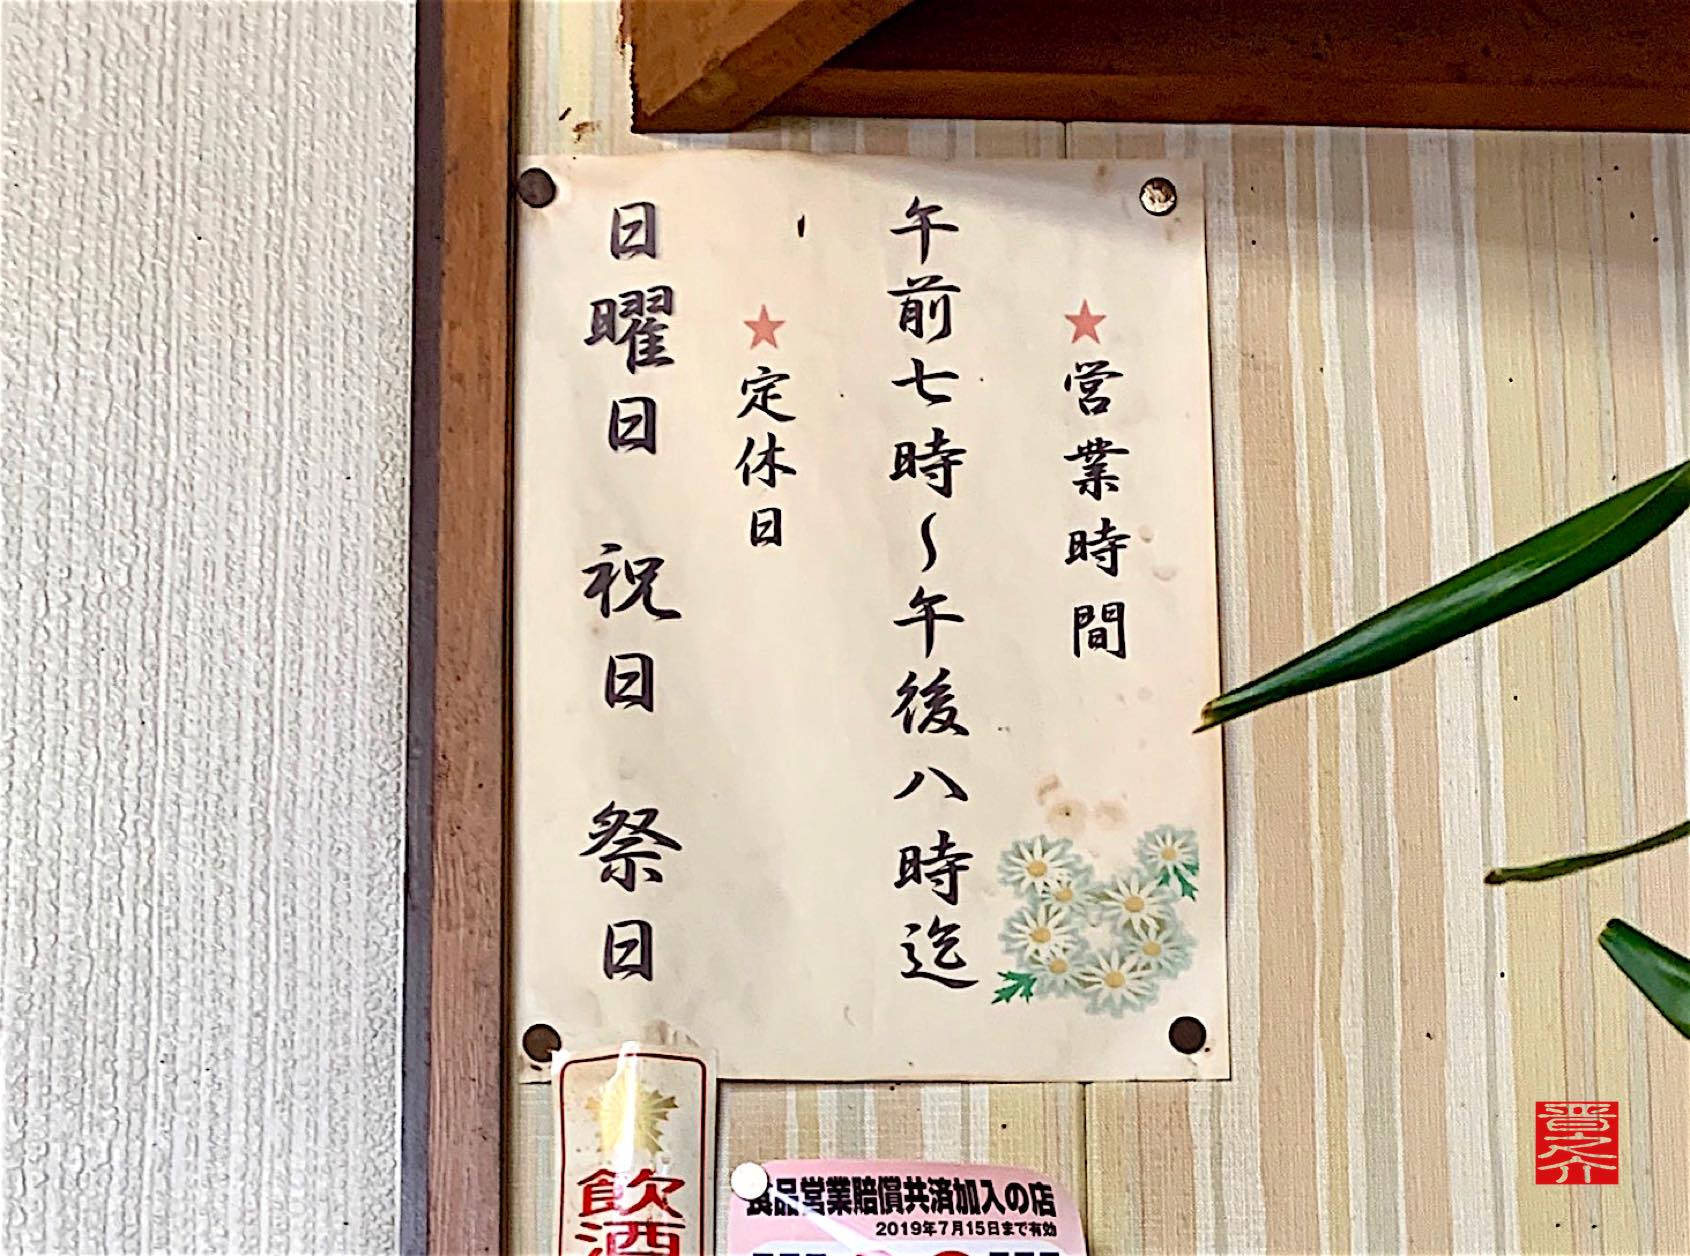 ★営業時間
午前七時～午後八時迄
★定休日
日曜日 祝日 祭日
飲酒
食品営業賠償共済加入の店
2019年7月15日まで有効
晋之介